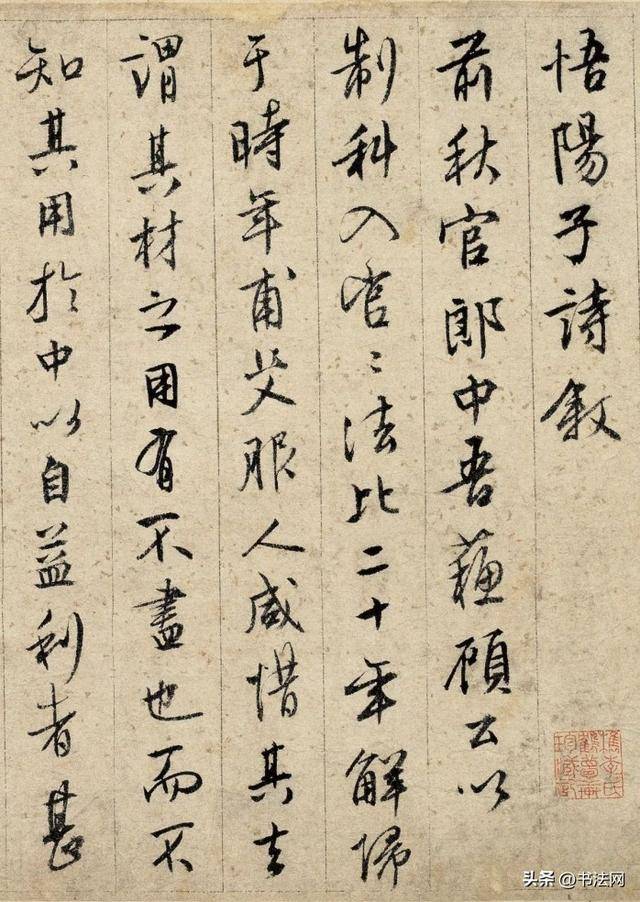 悟陽子詩敘
前秋官郎中吾蘓顧公以
制科入官〻法比二十年解歸
于時年甫艾服人咸惜其去
謂其材之用有不盡也而不
知其用於中以自益利者甚
檇李氏
鶴夢軒
珍藏記
头条 @书法网